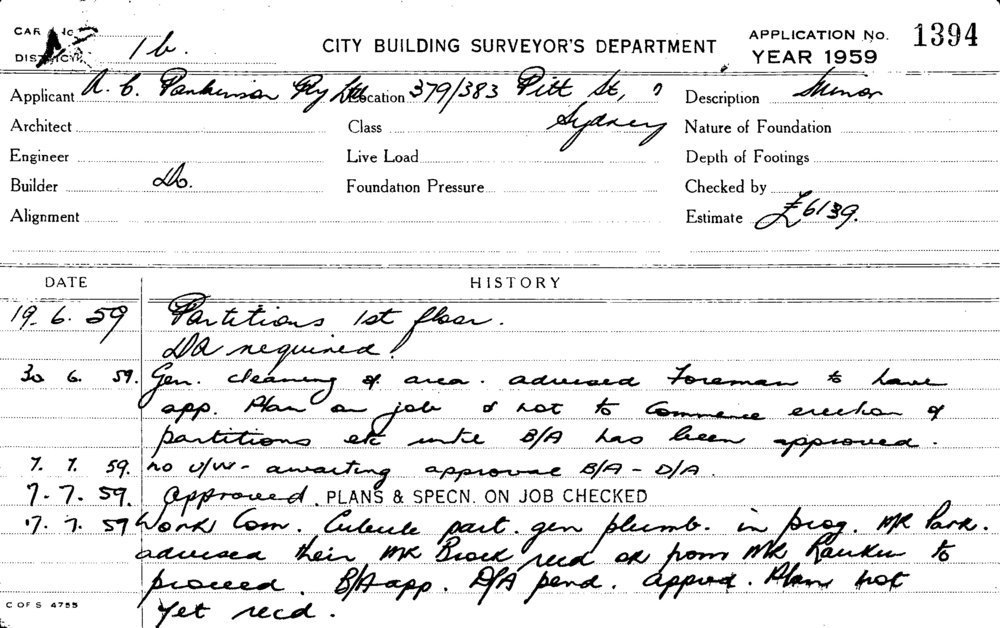 CARD No.
DISTRICT 1b.
CITY BUILDING SURVEYOR'S DEPARTMENT
APPLICATION No. 1394
YEAR 1959
Applicant A. C. Parkinson Pty Ltd Location 379/383 Pitt St, Sydney Description Minor
Architect Class Nature of Foundation
Engineer Live Load Depth of Footings
Builder Do. Foundation Pressure Checked by
Alignment Estimate £6139.
DATE HISTORY
19. 6. 59 Partitions 1st floor.
DA required.
30 6. 59. Gen. cleaning of area. advised Foreman to have
app. Plan on job & not to Commence erection of
partitions etc until B/A has been approved.
7. 7. 59. no U/W - awaiting approval B/A - D/A.
7. 7. 59. Approved. PLANS & SPECN. ON JOB CHECKED
17. 7. 59 Work Com. Cubicle part. gen plumb. in prog. MR Park.
advised their MR Brock recd ok from MR to
proceed. B/A app. D/A pend. approd. Plans not
yet recd.
C OF S 4755